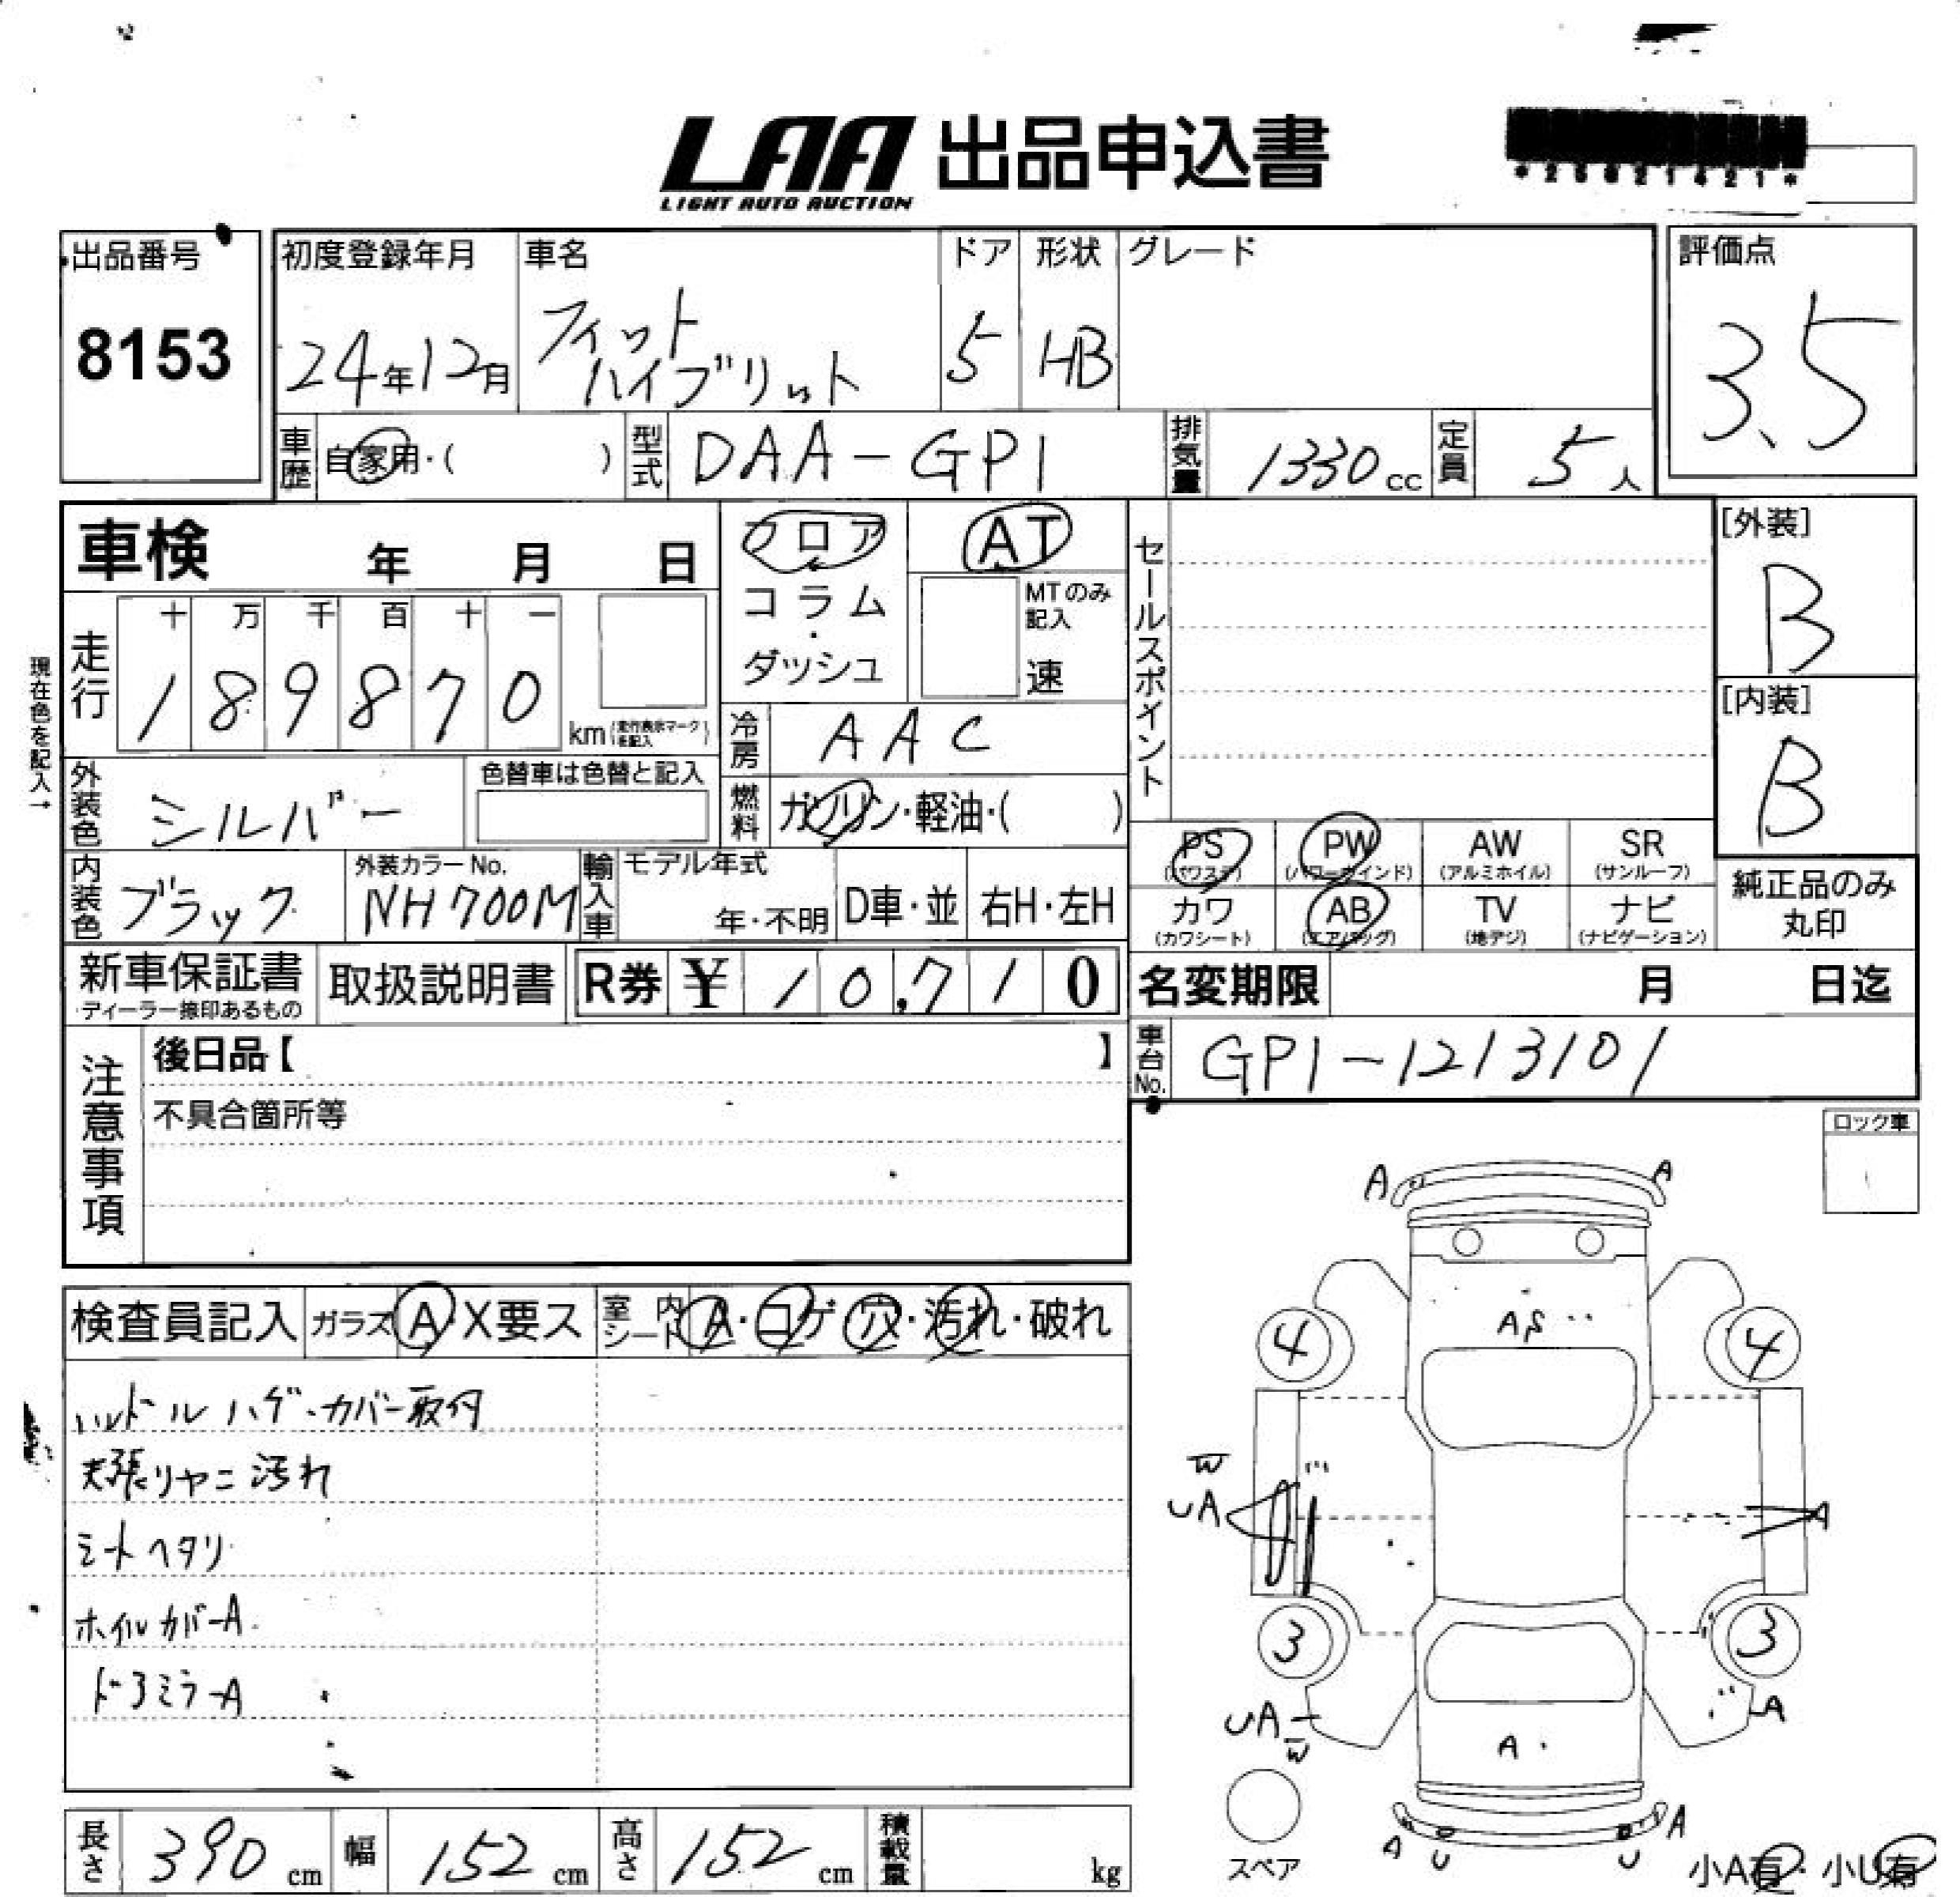 LAA 出品申込書
LIGHT AUTO AUCTION
出品番号
8153
初度登録年月
24年12月
車名
フィット
ハイブリット
ドア
5
形状
HB
グレード
評価点
3.5
車歴
自家用・( )
型式
DAA-GP1
排気量
1330cc
定員
5人
車検 年 月 日
フロア
コラム
・
ダッシュ
AT
MTのみ
記入
速
セールスポイント
[外装]
B
[内装]
B
現在色を記入→
走行
十 万 千 百 十 一
1 8 9 8 7 0
km(走行表示マークを記入)
冷房
AAC
外装色
シルバー
色替車は色替と記入
燃料
ガソリン・軽油・( )
PS
(パワステ)
PW
(パワーウインド)
AW
(アルミホイル)
SR
(サンルーフ)
カワ
(カワシート)
AB
(エアバッグ)
TV
(地デジ)
ナビ
(ナビゲーション)
純正品のみ
丸印
内装色
ブラック
外装カラーNo.
NH700M
輸入車
モデル年式
年・不明
D車・並
右H・左H
新車保証書
ディーラー捺印あるもの
取扱説明書
R券 ¥ 10,710
名変期限 月 日迄
車台No.
GP1-1213101
注意事項
後日品【 】
不具合箇所等
ロック車
検査員記入
ガラス A・X要ス
室内シート A・コゲ・穴・汚れ・破れ
ハンドルハゲ・カバー取付
天張リヤニ汚れ
シートヘタリ
ホイルカバーA
ドアミラーA
A A
AS
4 4
W
UA A
3 3
UA A
W
A
A U U A
スペア
小A有・小U有
長さ 390 cm
幅 152 cm
高さ 152 cm
積載量 kg